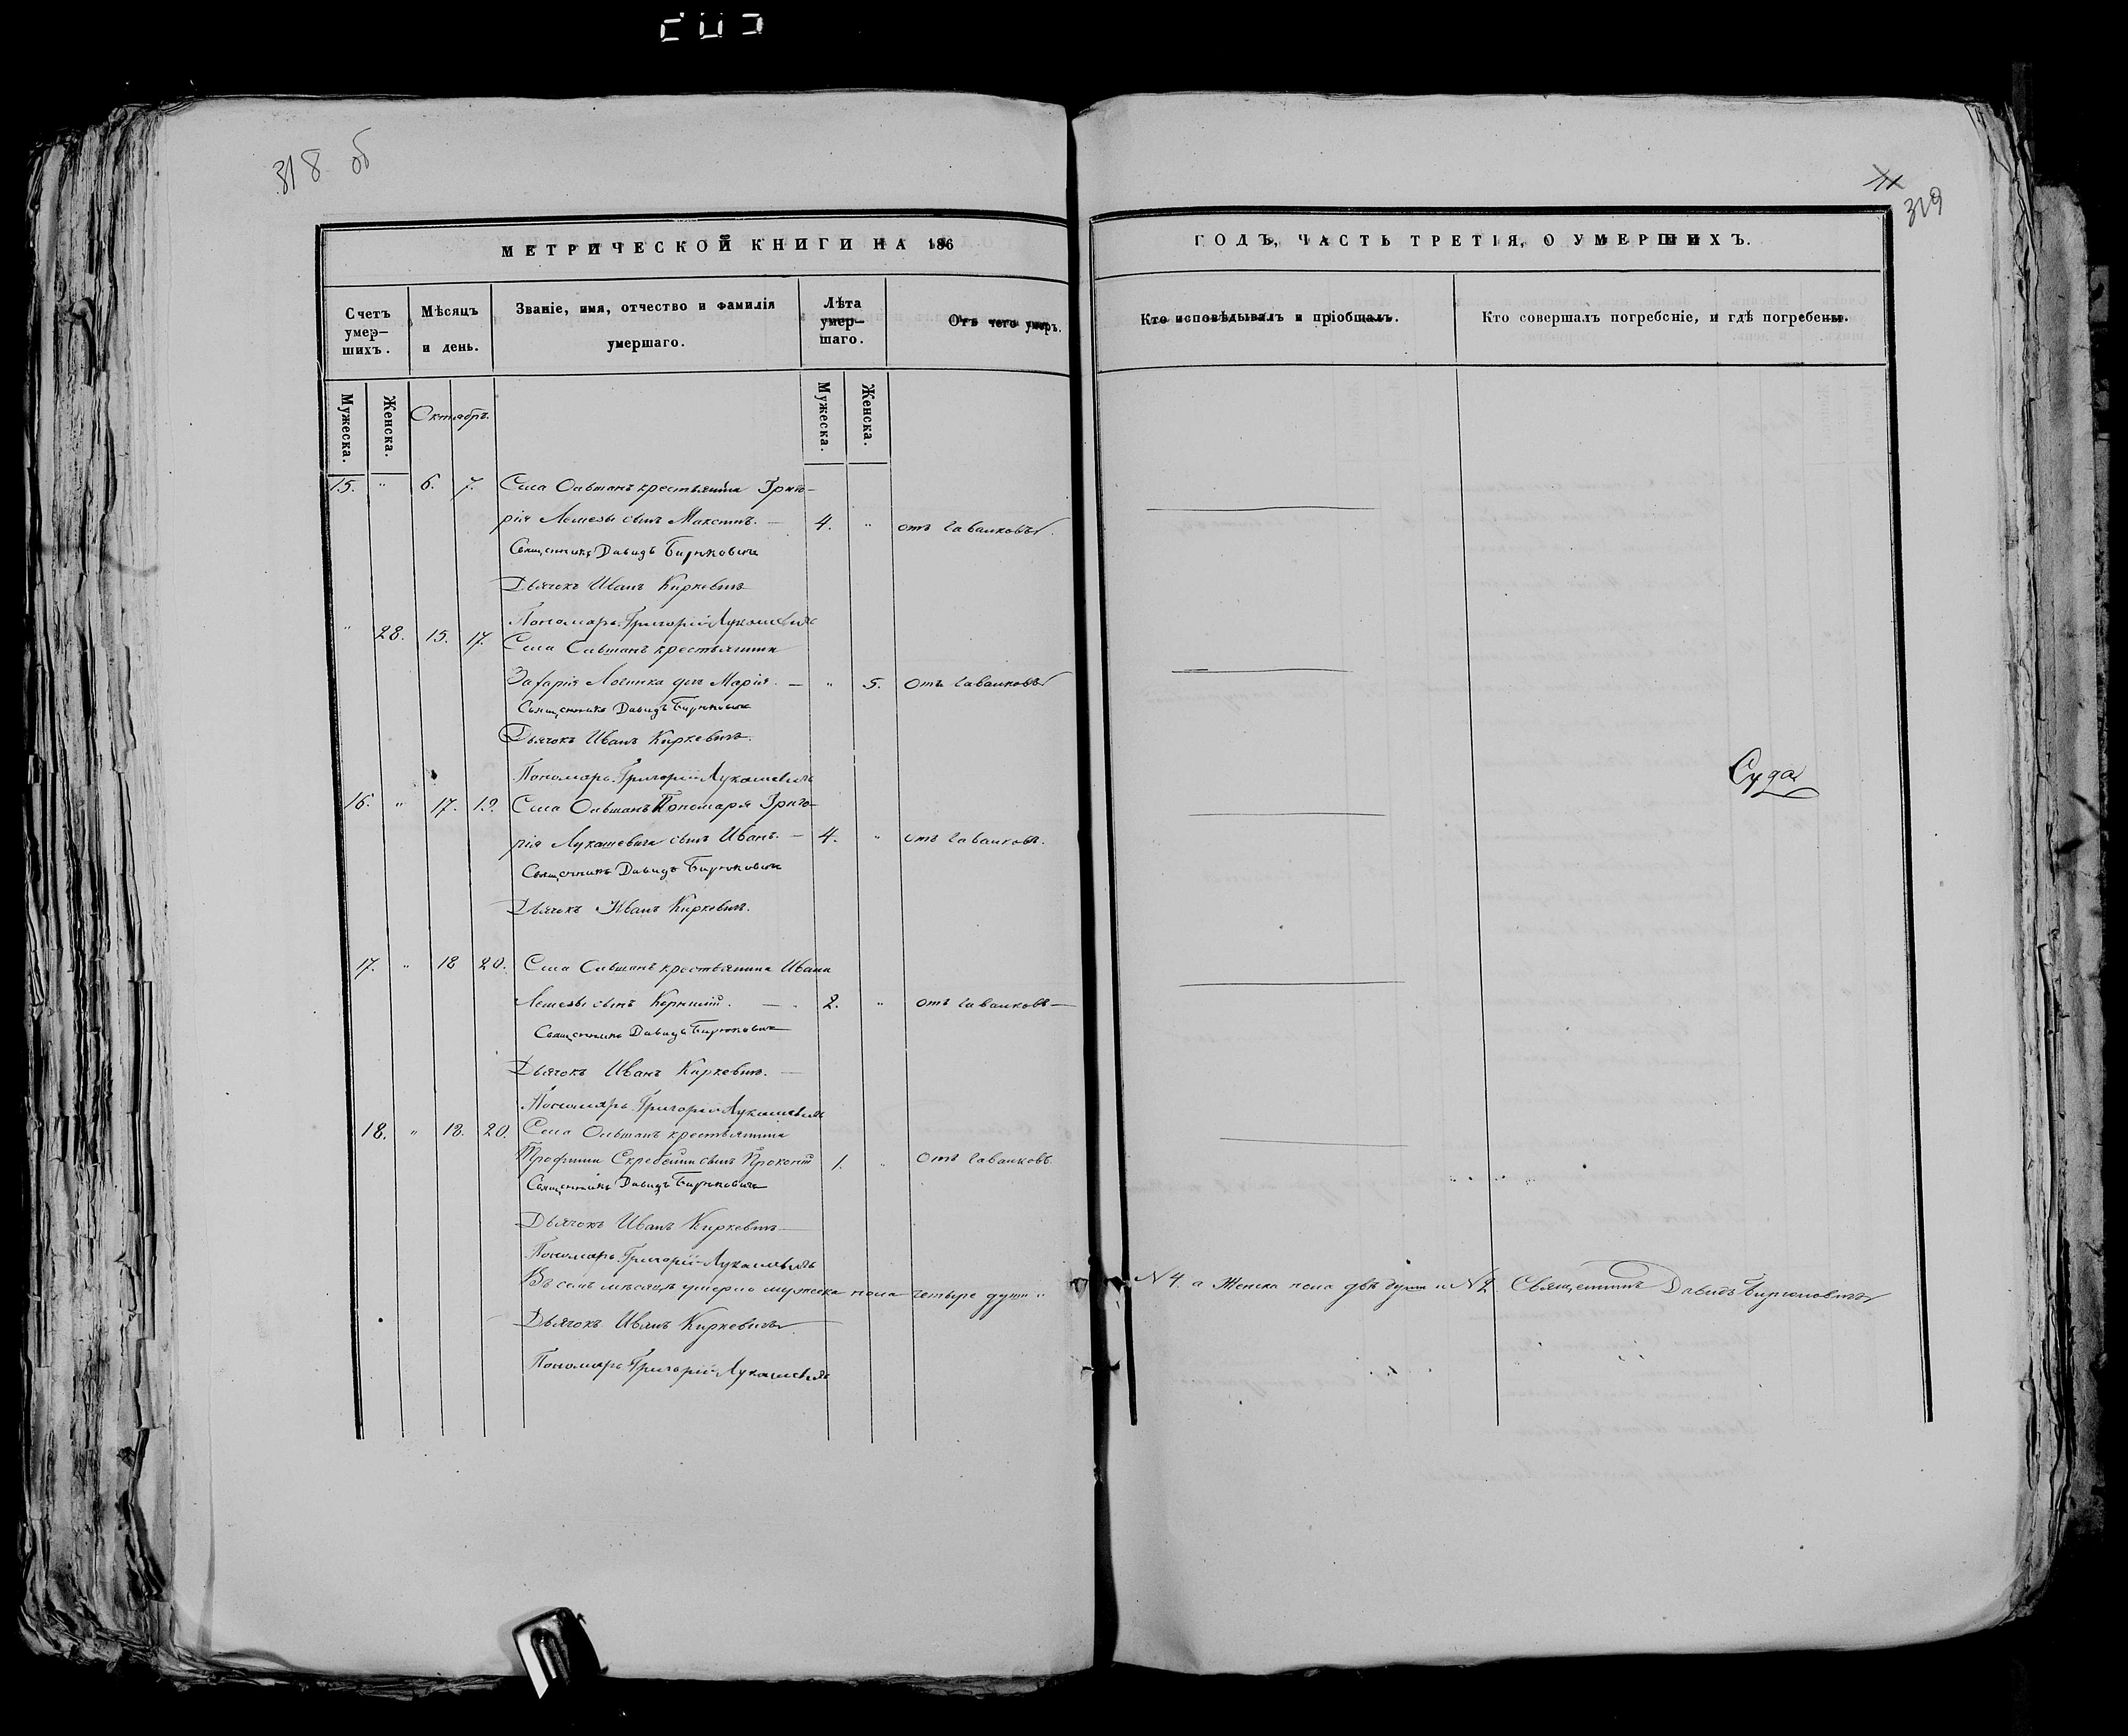 318 об
319
МЕТРИЧЕСКОЙ КНИГИ НА 186
ГОДЪ, ЧАСТЬ ТРЕТІЯ, О УМЕРШИХЪ.
Счетъ умер-шихъ.
Мѣсяцъ и день.
Званіе, имя, отчество и фамилія умершаго.
Лѣта умер-шаго.
Отъ чего умеръ.
Кто исповѣдывалъ и пріобщалъ.
Кто совершалъ погребеніе, и гдѣ погребены.
Мужеска. Женска. Октябрь. Мужеска. Женска.
15. " 6. 7. Села Ольшанъ крестьянина Григо-
рія сынъ Максимъ. — 4. " отъ
Священникъ Давидъ Бирюковичъ
Дьячокъ Иванъ Киркевичъ
Пономарь Григорій Лукашевичъ
" 28. 15. 17. Села Ольшанъ крестьянина
Захарія дочь Марія. — " 5. Отъ
Священникъ Давидъ Бирюковичъ
Дьячокъ Иванъ Киркевичъ.
Пономарь Григорій Лукашевичъ
Суда
16. " 17. 19. Села Ольшанъ Пономаря Григо-
рія Лукашевича сынъ Иванъ. — 4. " отъ
Священникъ Давидъ Бирюковичъ
Дьячокъ Иванъ Киркевичъ.
17. " 18 20. Села Ольшанъ крестьянина Ивана
сынъ — 2. " отъ
Священникъ Давидъ Бирюковичъ
Дьячокъ Иванъ Киркевичъ. —
Пономарь Григорій Лукашевичъ
18. " 18. 20. Села Ольшанъ крестьянина
сынъ 1. " Отъ
Священникъ Давидъ Бирюковичъ
Дьячокъ Иванъ Киркевичъ
Пономарь Григорій Лукашевичъ
Въ семъ мѣсяцѣ умерло мужеска пола четыре души и
N 4. а Женска пола двѣ души и N 2. Священникъ Давидъ Бирюковичъ
Дьячокъ Иванъ Киркевичъ
Пономарь Григорій Лукашевичъ